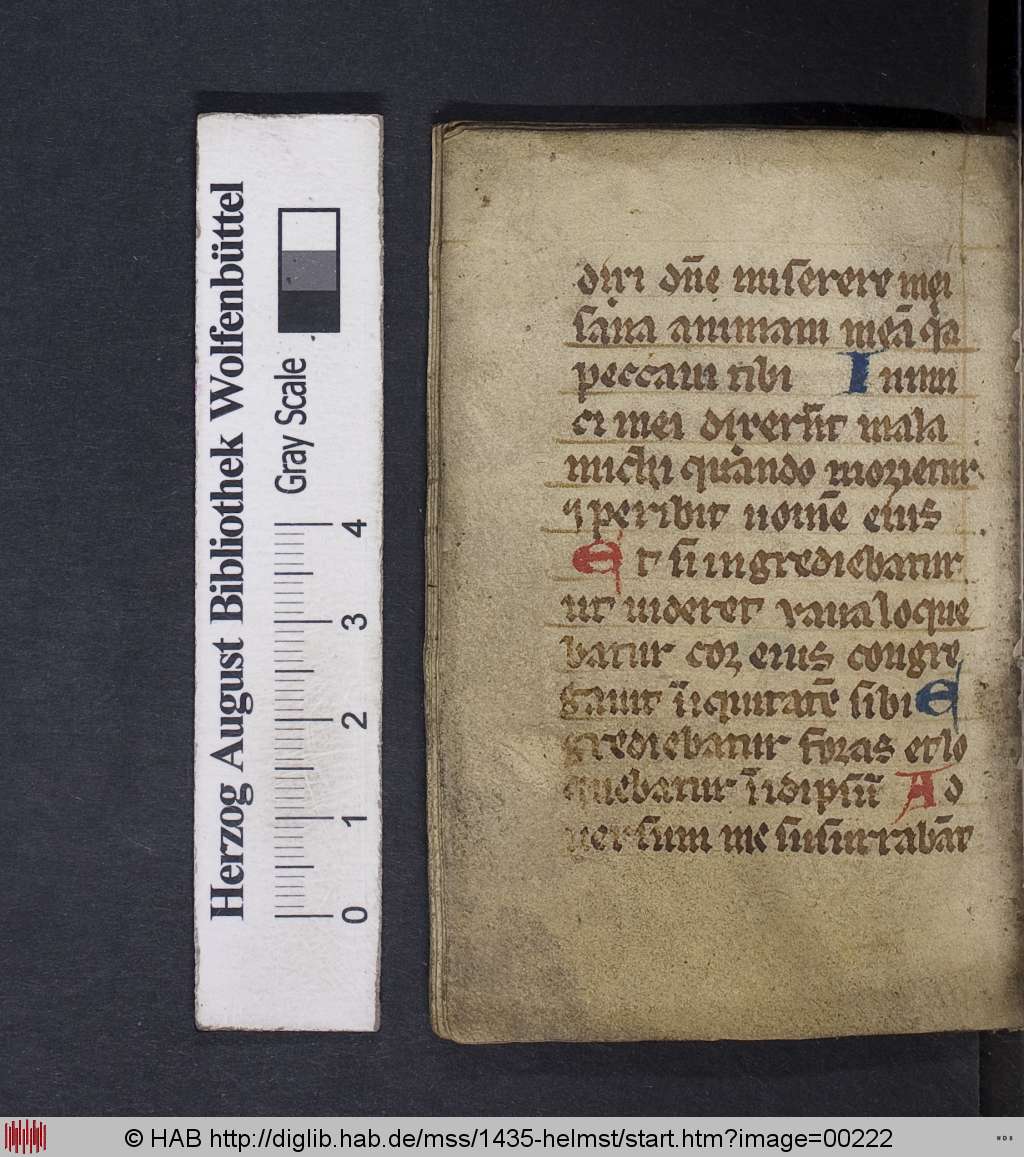 Herzog August Bibliothek Wolfenbüttel
Gray Scale
0 1 2 3 4
dixi dñe miserere mei
sana animam meā qa
peccaui tibi Inimi
ci mei dixerūt mala
michi quando morietur
⁊ peribit nomē eius
Et si ingrediebatur
ut uideret vana loque
batur cor eius congre
gauit īiquitatē sibi E
grediebatur foras et lo
quebatur īidipsūm Ad
uersum me susurrabāt
© HAB http://diglib.hab.de/mss/1435-helmst/start.htm?image=00222